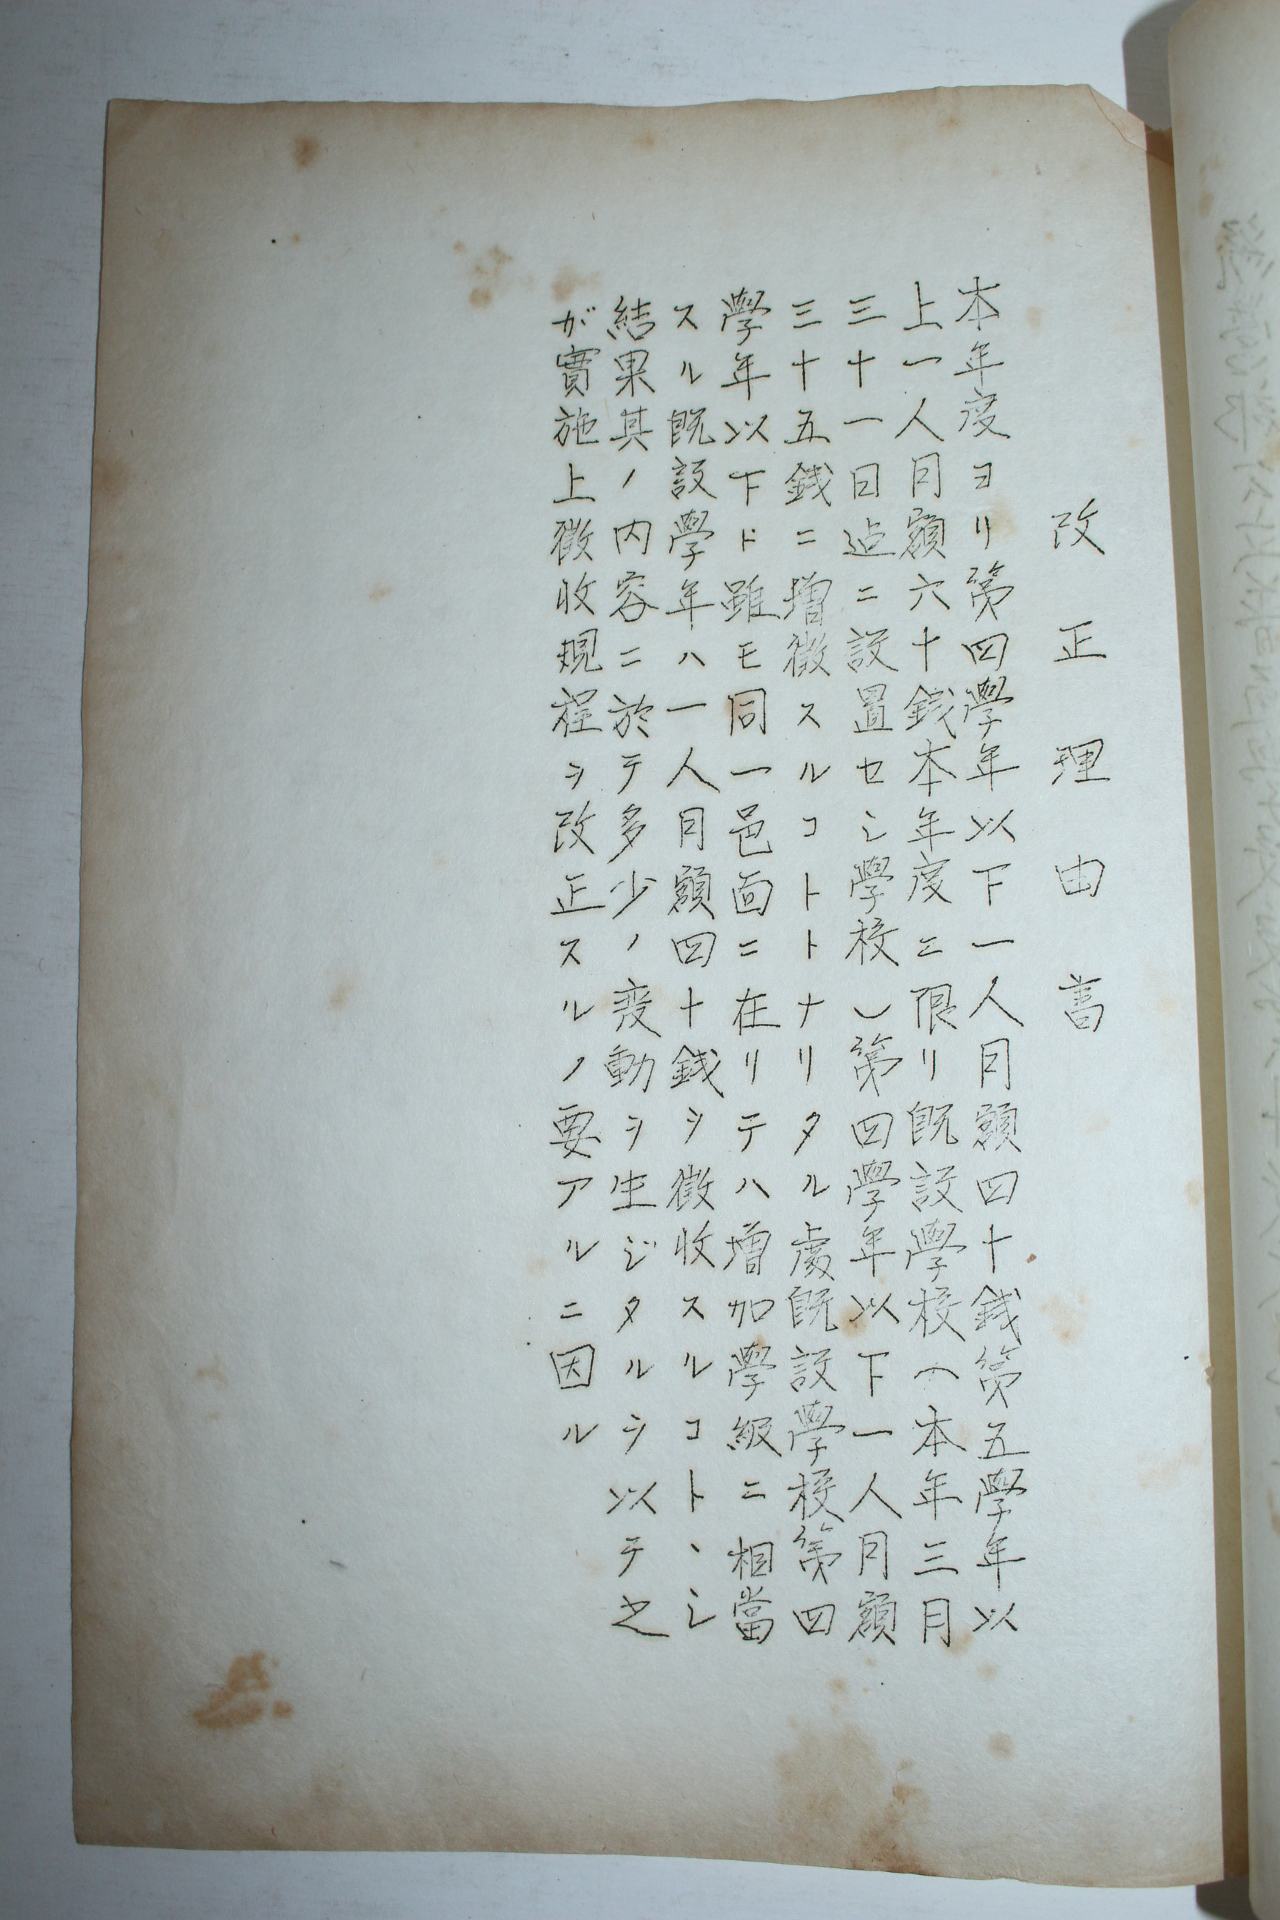 改正理由書
本年度ヨリ第四學年以下一人月額四十銭第五學年以
上一人月額六十銭本年度ニ限リ既設學校(本年三月
三十一日迄ニ設置セシ學校)第四學年以下一人月額
三十五銭ニ増徴スルコトトナリタル處既設學校第四
學年以下ト雖モ同一邑面ニ在リテハ増加學級ニ相當
スル既設學年ハ一人月額四十銭ヲ徴收スルコトヽシ
結果其ノ内容ニ於テ多少ノ変動ヲ生ジタルヲ以テ之
が實施上徴收規程ヲ改正スルノ要アルニ因ル